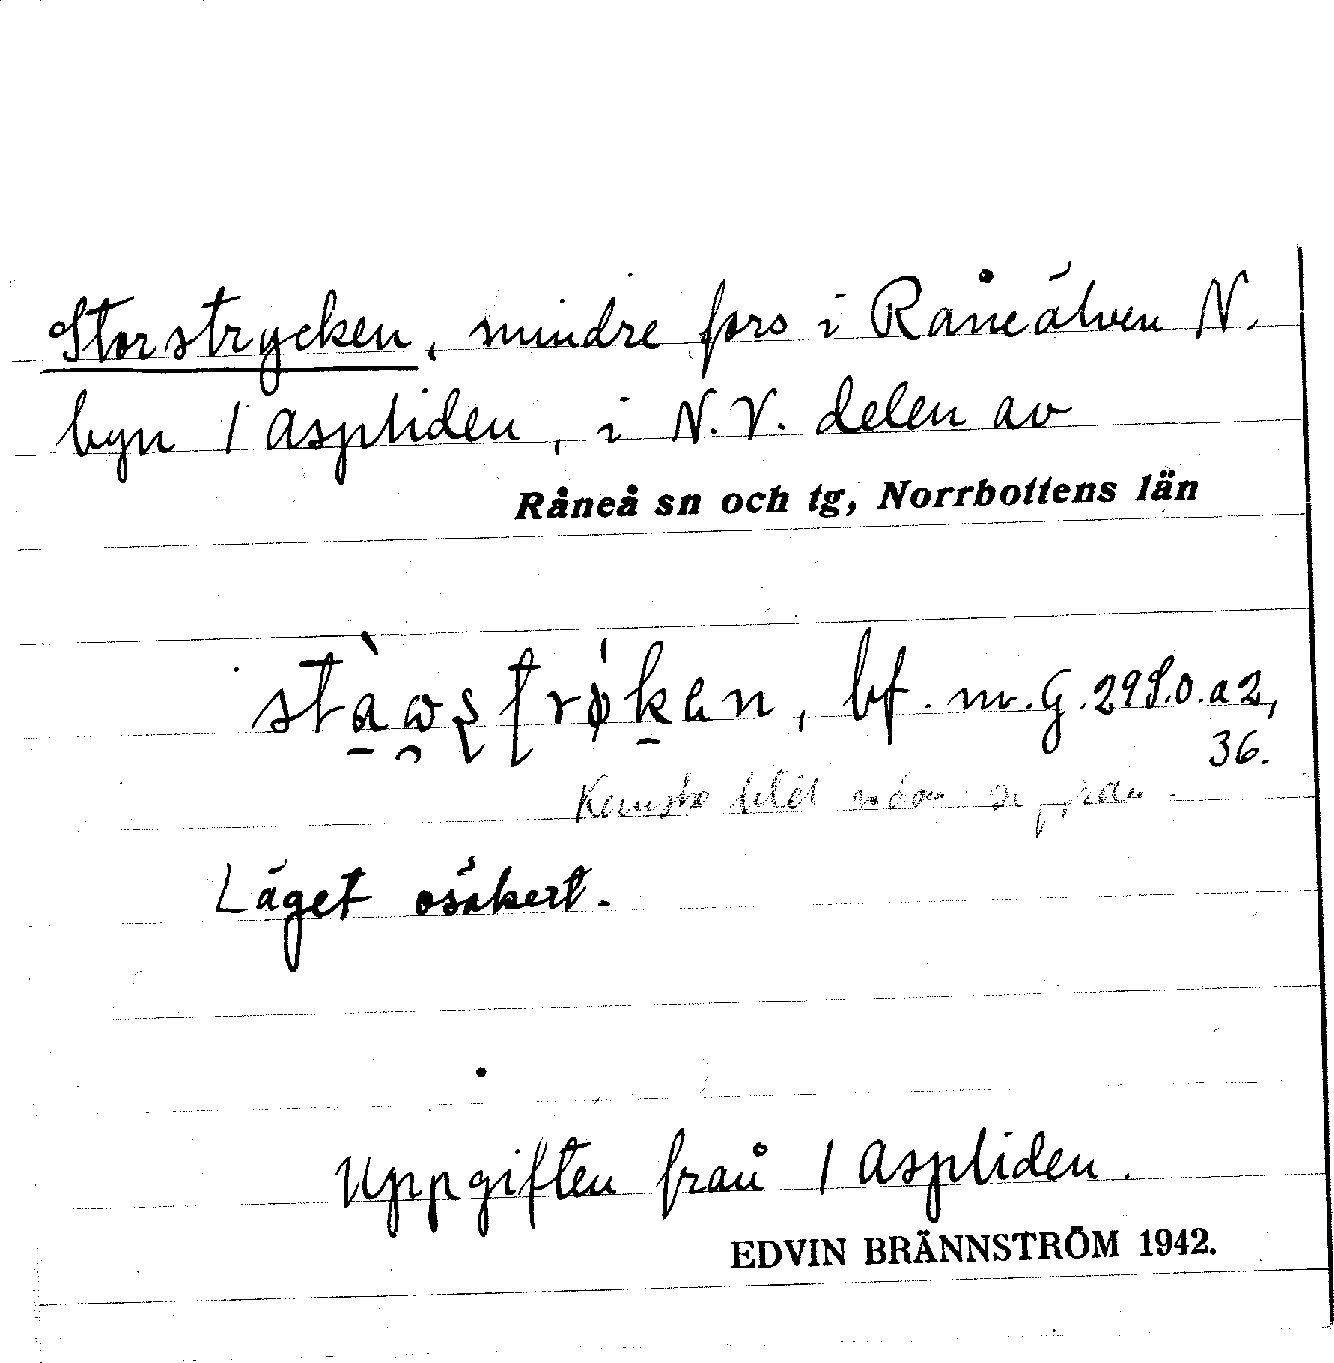 Storstrycken, mindre fors i Råneälven N.
byn 1 Aspliden, i N.V. delen av
Råneå sn och tg, Norrbottens län
bf. m. G. 29 S.O. a 2,
36.
Läget osäkert.
Uppgiften från 1 Aspliden.
EDVIN BRÄNNSTRÖM 1942.